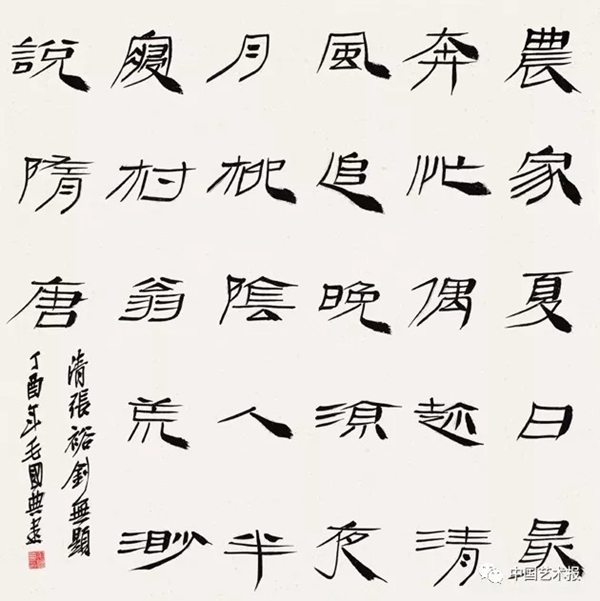 農家夏日最
奔忙偶趁清
風追晚涼夜
月柳陰人半
寢村翁荒渺
說隋唐
清張裕釗無題
丁酉年毛國典書
中国艺术报